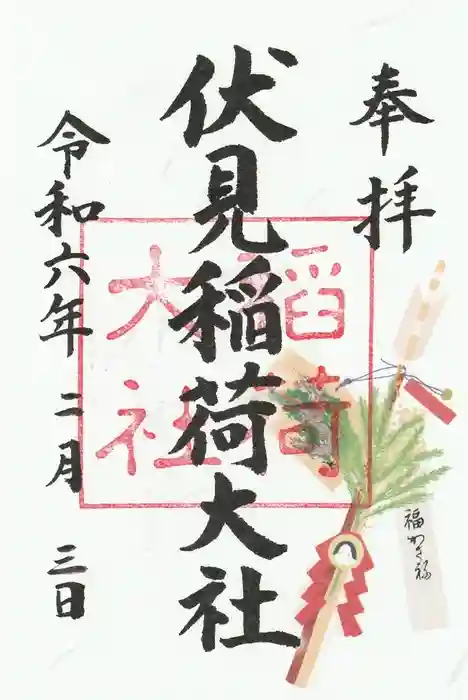 奉拝
伏見稲荷大社
稲荷
大社
令和六年 二月 三日
福かさね